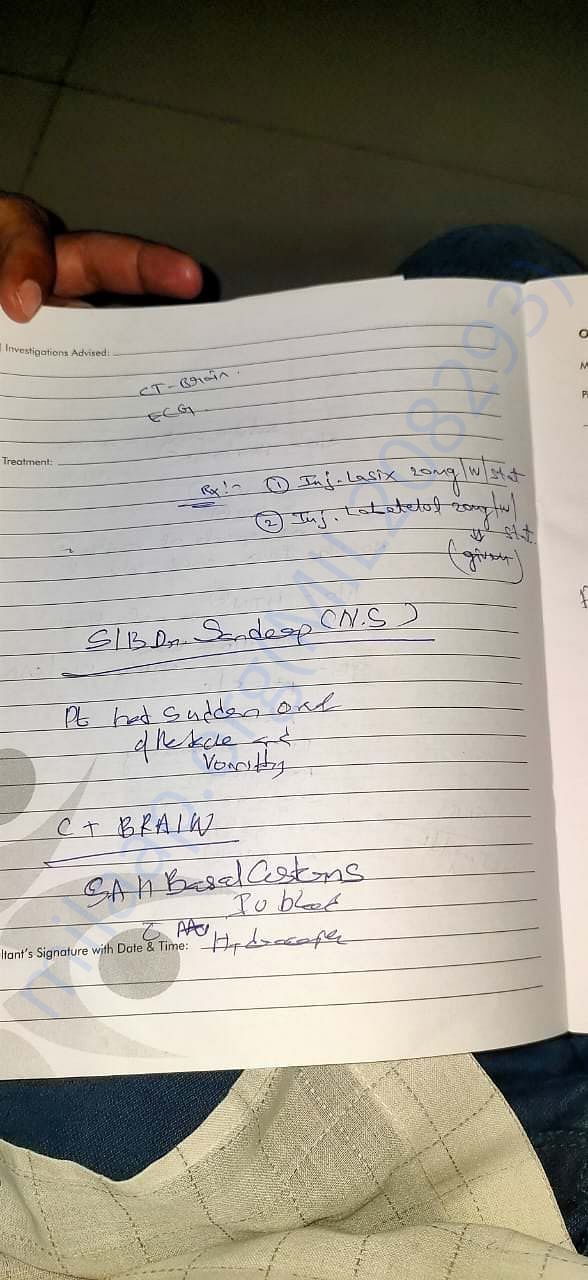 Investigations Advised:
CT-Brain.
ECG
Treatment:
Rx:- ① Inj. Lasix 20mg/IV/stat
② Inj. Labetelol 20mg/IV/
stat.
(given)
S/B Dr. Sandeep (N.S)
Pt had sudden
Vomiting
CT BRAIN
SAH Basal Cisterns
ltant's Signature with Date & Time:
milaap.org(MIL2082937